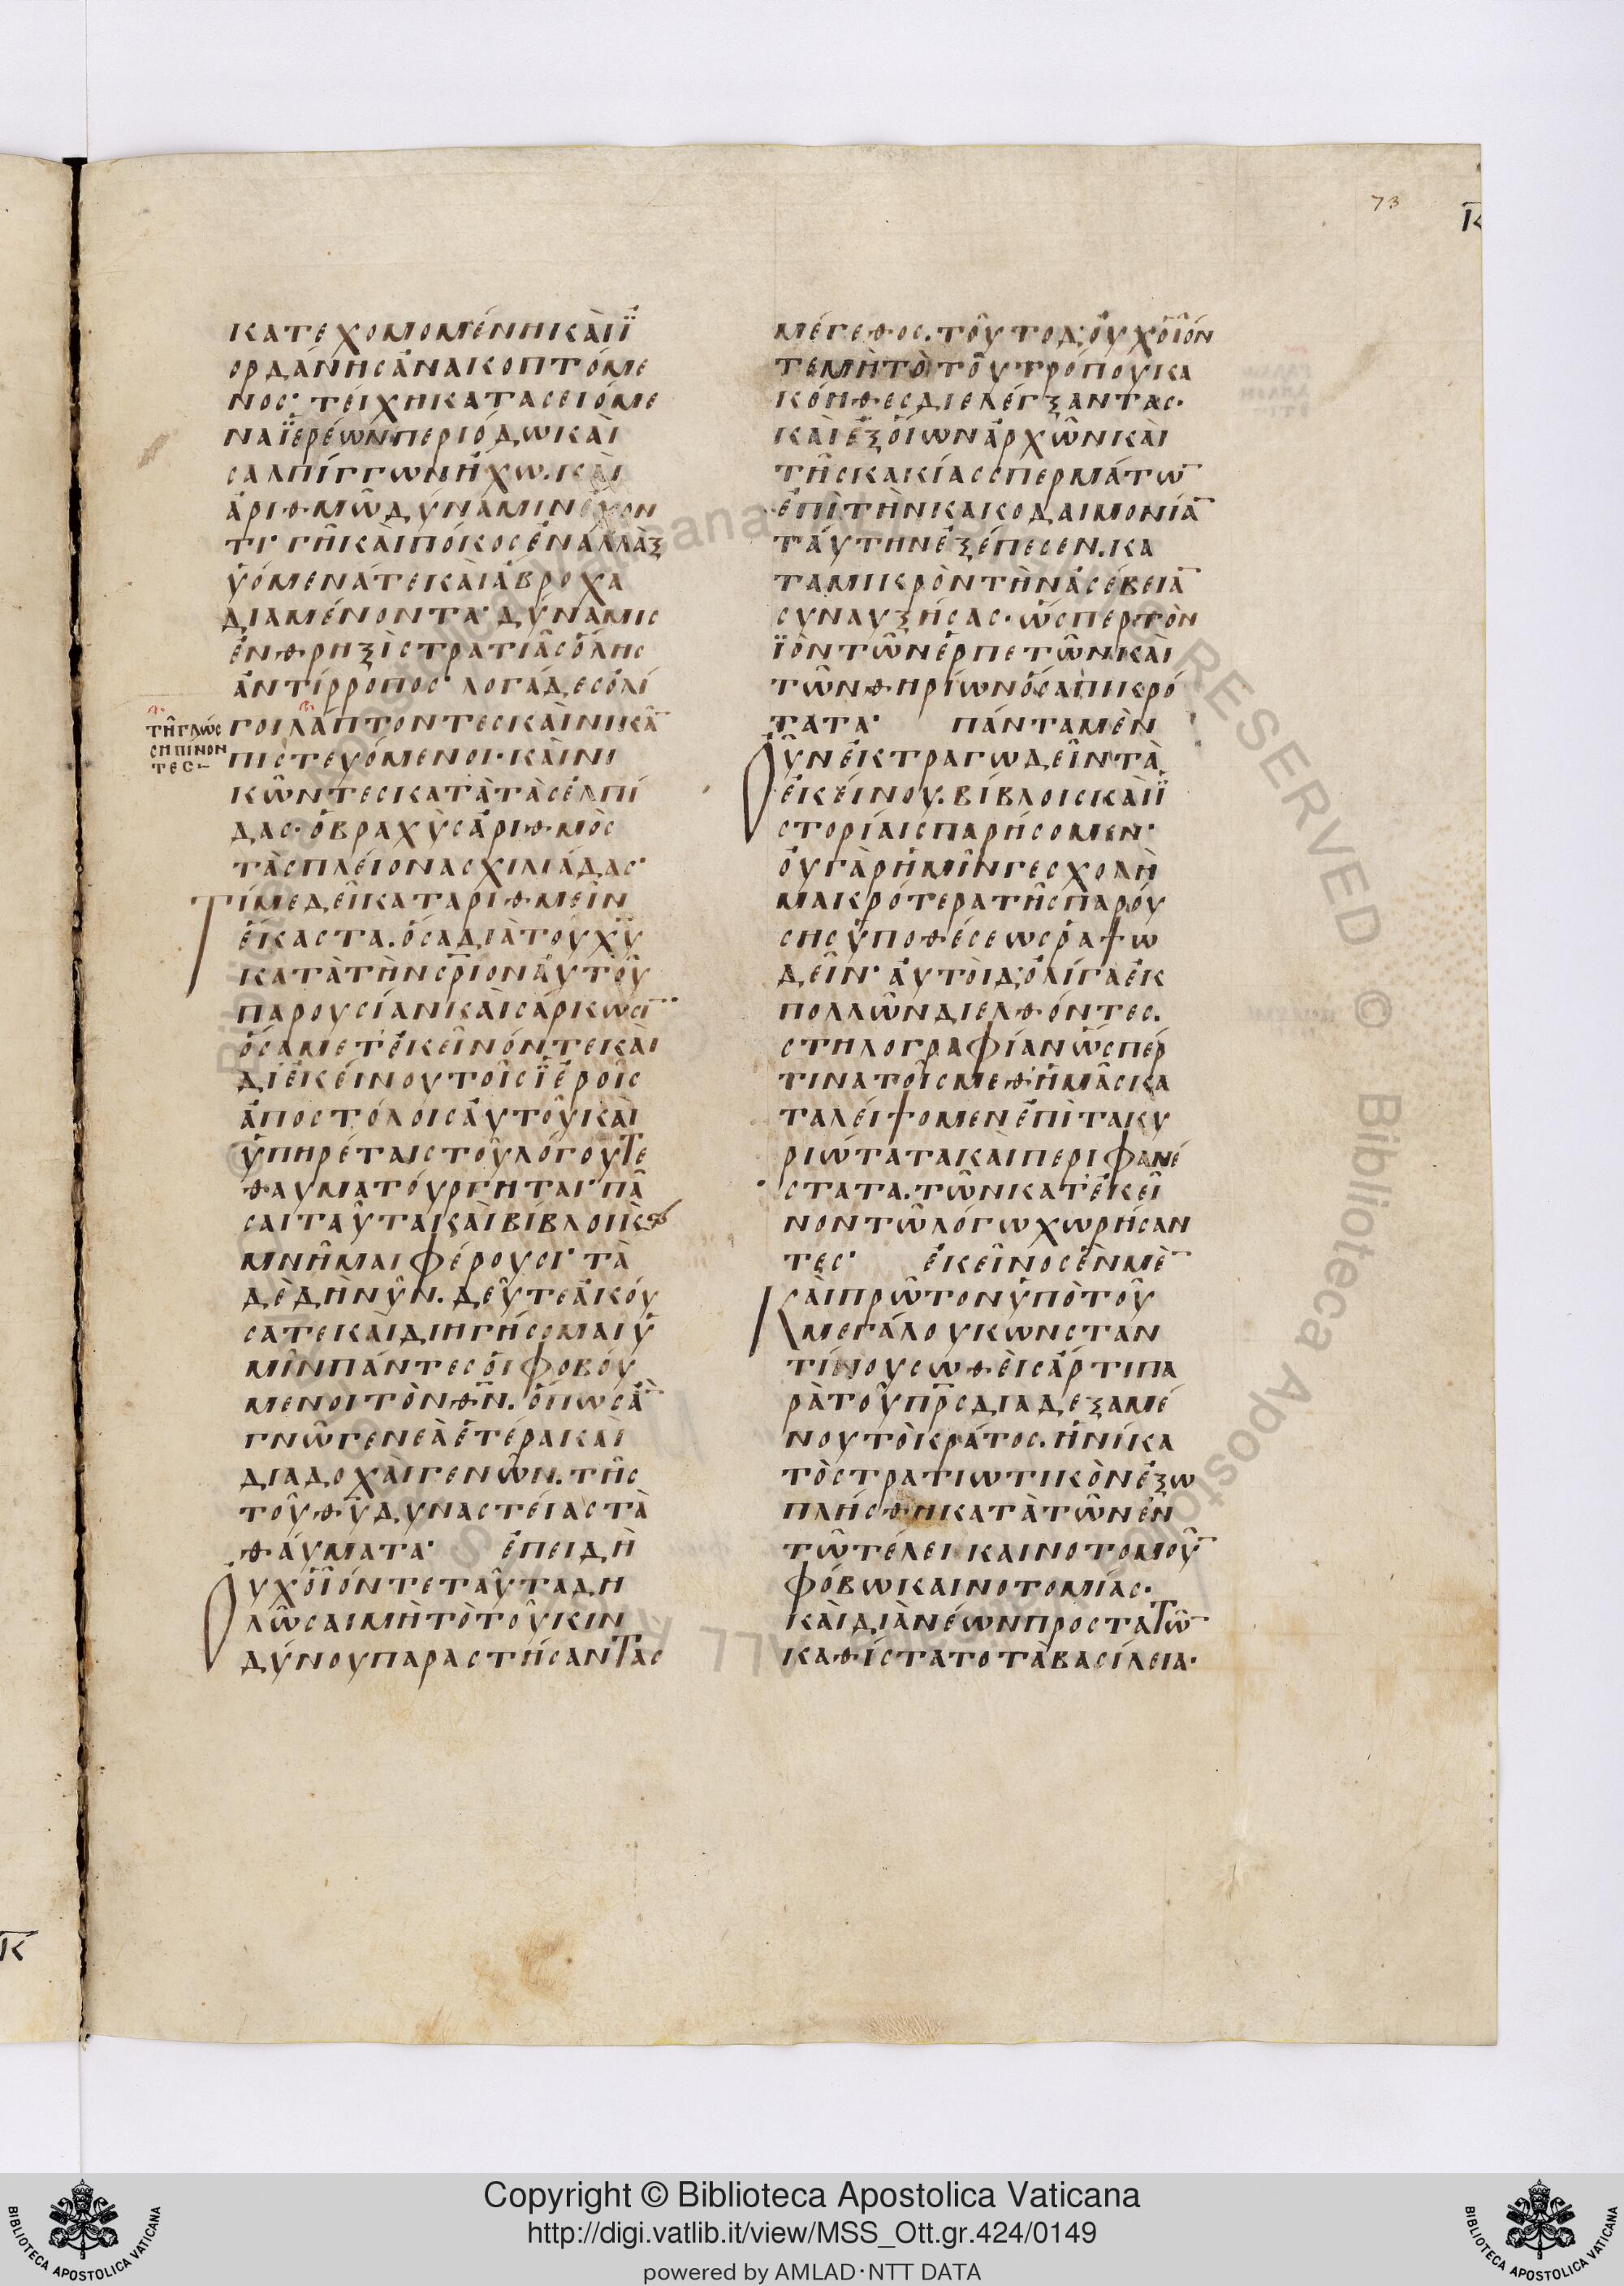 73
Κ
ΚΑΤΕΧΟΜΟΜΈΝΗΚΑῚΪ
ΟΡΔΆΝΗΣἈΝΑΚΟΠΤΌΜΕ
ΝΟΣ· ΤΕΊΧΗΚΑΤΑΣΕΙΌΜΕ
ΝΑΪἙΡΈΩΝΠΕΡΙΌΔΩΚΑῚ
ΣΑΛΠΊΓΓΩΝἨΧΩ.ΚΑῚ
ἈΡΙΘΜΩ͂ΔΎΝΑΜΙΝΈΧΟΝ
ΤΙ· ΓΗ͂ΚΑῚΠΌΚΟΣἘΝΑΛΛᾺΞ
ὙΌΜΕΝΆΤΕΚΑῚἌΒΡΟΧΑ
ΔΙΑΜΈΝΟΝΤΑ· ΔΎΝΑΜΙΣ
ἘΝΘΡΗΞῚΣΤΡΑΤΙΑ͂ΣὍΛΗΣ
ἈΝΤΊΡΡΟΠΟΣ· ΛΟΓΆΔΕΣὈΛΊ
ΤΗ͂ΓΛΏΣ
ΣΗΠΙΝΟΝ
ΤΕΣ:–
ΓΟΙΛΆΠΤΟΝΤΕΣΚΑῚΝΙΚΑ͂
ΠΙΣΤΕΥΌΜΕΝΟΙ·ΚΑῚΝΙ
ΚΩ͂ΝΤΕΣΚΑΤᾺΤᾺΣἘΛΠΊ
ΔΑΣ·ὉΒΡΑΧῪΣἈΡΙΘΜῸΣ
ΤᾺΣΠΛΕΊΟΝΑΣΧΙΛΙΆΔΑΣ·
ΤΊΜΕΔΕΙ͂ΚΑΤΑΡΙΘΜΕΙ͂Ν
ἝΚΑΣΤΑ.ὍΣΑΔΙᾺΤΟΥΧΥ
ΚΑΤᾺΤῊΝΣΡΙΟΝἈΥΤΟΥ͂
ΠΑΡΟΥΣΊΑΝΚΑῚΣΆΡΚΩΣΙ¨
ὍΣΑΜΕΤ᾽ἘΚΕΙ͂ΝΌΝΤΕΚΑΙ
ΔΙ᾽ἘΚΕΊΝΟΥΤΟΙ͂ΣΪἙΡΟΙ͂Σ
ἈΠΟΣΤΌΛΟΙΣἈΥΤΟΥ͂ΚΑῚ
ὙΠΗΡΈΤΑΙΣΤΟΥ͂ΛΌΓΟΥΤΕ
ΘΑΥΜΑΤΟΎΡΓΗΤΑΙ· ΠΑ͂
ΣΑΙΤΑΥ͂ΤΑΚΑῚΒΊΒΛΟΙΚϚ
ΜΝΗ͂ΜΑΙΦΈΡΟΥΣΙ· ΤᾺ
ΔῈΔΗΝΥ͂Ν.ΔΕΥ͂ΤΕἈΚΟΎ
ΣΑΤΕΚΑῚΔΙΗΓΉΣΟΜΑΙὙ
ΜΙ͂ΝΠΆΝΤΕΣὉΙΦΟΒΟΎ
ΜΕΝΟΙΤῸΝΘΝ.ὍΠΩΣἊ
ΓΝΩ͂ΓΕΝΕᾺἙΤΈΡΑΚΑῚ
ΔΙΑΔΟΧΑῚΓΕΝΩ͂Ν.ΤΗ͂Σ
ΤΟΥ͂ΘΥΔΥΝΑΣΤΕΊΑΣΤᾺ
ΘΆΥΜΑΤΑ· ἘΠΕΙΔῊ
ΟΥΧΟΙ͂ΌΝΤΕΤΑΥ͂ΤΑΔΗ
ΛΩ͂ΣΑΙΜῊΤῸΤΟΥ͂ΚΙΝ
ΔΎΝΟΥΠΑΡΑΣΤΉΣΑΝΤΑΣ
ΜΈΓΕΘΟΣ.ΤΟΥ͂ΤΟΔ᾽ΟΥΧΟΙ͂ΌΝ
ΤΕΜῊΤῸΤΟΥ͂ΤΡΌΠΟΥΚΑ
ΚΌΗΘΕΣΔΙΕΛΈΓΞΑΝΤΑΣ·
ΚΑῚἘΞΟἹΩΝἈΡΧΩ͂ΝΚΑῚ
ΤΗ͂ΣΚΑΚΊΑΣΣΠΕΡΜΆΤΩ
ἘΠῚΤῊΝΚΑΚΟΔΑΙΜΟΝΊΑ
ΤΆΥΤΗΝἘΞΈΠΕΣΕΝ.ΚΑ
ΤΑΜΙΚΡῸΝΤῊΝἈΣΈΒΕΙΑ
ΣΥΝΑΥΞΉΣΑΣ·ὭΣΠΕΡΤῸΝ
ΪῸΝΤΩ͂ΝἙΡΠΕΤΩ͂ΝΚΑῚ
ΤΩ͂ΝΘΗΡΊΩΝὉΣΑΠΙΚΡΌ
ΤΑΤΑ· ΠΆΝΤΑΜῈΝ
ΟΥ͂ΝἘΚΤΡΑΓΩΔΕΙ͂ΝΤᾺ
ἘΚΕΊΝΟΥ.ΒΊΒΛΟΙΣΚΑῚΪ
ΣΤΟΡΊΑΙΣΠΑΡΉΣΟΜΕΝ·
ὈΥΓᾺΡἩΜΙ͂ΝΓΕΣΧΟΛῊ
ΜΑΚΡΌΤΕΡΑΤΗ͂ΣΠΑΡΟΎ
ΣΗΣὙΠΟΘΈΣΕΩΣΡΑΨΩ
ΔΕΙ͂Ν· ἈΥΤΟῚΔ᾽ὈΛΊΓΑἘΚ
ΠΟΛΛΩ͂ΝΔΙΕΛΘΌΝΤΕΣ.
ΣΤΗΛΟΓΡΑΦΊΑΝὭΣΠΕΡ
ΤΙΝΑΤΟΙ͂ΣΜΕΘ᾽ἩΜΑ͂ΣΚΑ
ΤΑΛΕΊΨΟΜΕΝἘΠῚΤΑΚΥ
ΡΙΏΤΑΤΑΚΑῚΠΕΡΙΦΑΝΈ
ΣΤΑΤΑ.ΤΩ͂ΝΚΑΤ᾽ἘΚΕΙ͂
ΝΟΝΤΩ͂ΛΌΓΩΧΩΡΉΣΑΝ
ΤΕΣ· ἘΚΕΙ͂ΝΟΣἘΝΜῈ
ΚΑῚΠΡΩ͂ΤΟΝὙΠῸΤΟΥ͂
ΜΕΓΆΛΟΥΚΩΝΣΤΑΝ
ΤΊΝΟΥΣΩΘῈΙΣἌΡΤΙΠΑ
ΡᾺΤΟΥ͂ΠΡΣΔΙΑΔΕΞΑΜΈ
ΝΟΥΤῸΚΡΆΤΟΣ.ἩΝΊΚΑ
ΤῸΣΤΡΑΤΙΩΤΙΚῸΝἘΞΩ
ΠΛΊΣΘΗΚΑΤᾺΤΩ͂ΝἘΝ
ΤΩ͂ΤΈΛΕΙΚΑΙΝΟΤΟΜΟΥ͂
ΦΌΒΩΚΑΙΝΟΤΟΜΊΑΣ·
ΚΑῚΔΙᾺΝΈΩΝΠΡΟΣΤΑΤΩ͂
ΚΑΘΊΣΤΑΤΟΤᾺΒΑΣΊΛΕΙΑ·
Κ
Copyright © Biblioteca Apostolica Vaticana
http://digi.vatlib.it/view/MSS_Ott.gr.424/0149
powered by AMLAD·NTT DATA
BIBLIOTECA APOSTOLICA VATICANA
BIBLIOTECA APOSTOLICA VATICANA